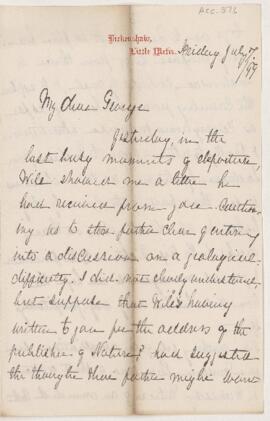 Acc. 576
Birkenshaw,
Little Metis.
Friday July 7/99
My dear George
Yesterday, in the
last busy moments of departure,
Will showed me a letter he
had received from you. Caution-
ing us to stop father from getting
into a discussion on a geological
difficulty. I did not clearly understand,
but suppose that Will's having
written to you for the address of the
publisher of "Nature" had suggested
the thought that father might want